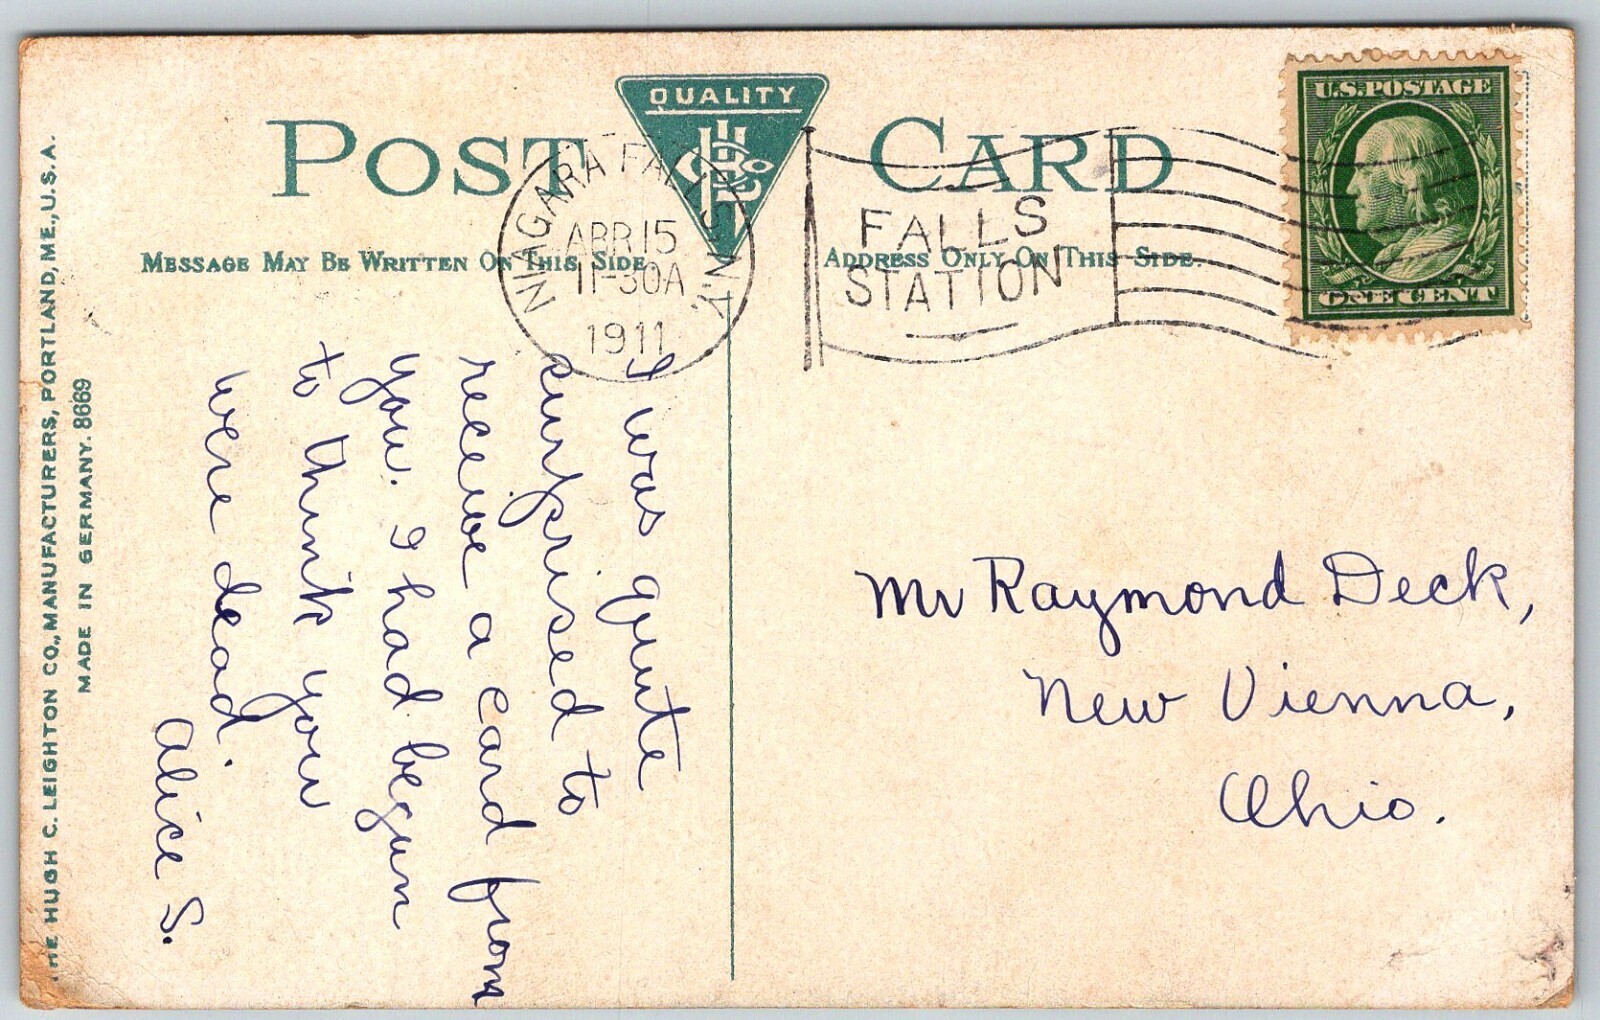 POST CARD
QUALITY
HCL Co
MESSAGE MAY BE WRITTEN ON THIS SIDE
ADDRESS ONLY ON THIS SIDE.
NIAGARA FALLS, N.Y.
APR 15
11-30A
1911
FALLS
STATION
U.S.POSTAGE
ONE CENT
THE HUGH C. LEIGHTON CO., MANUFACTURERS, PORTLAND, ME., U.S.A.
MADE IN GERMANY. 8669
I was quite
surprised to
receive a card from
you. I had begun
to think you
were dead.
Alice S.
Mr Raymond Deck,
New Vienna,
Ohio.